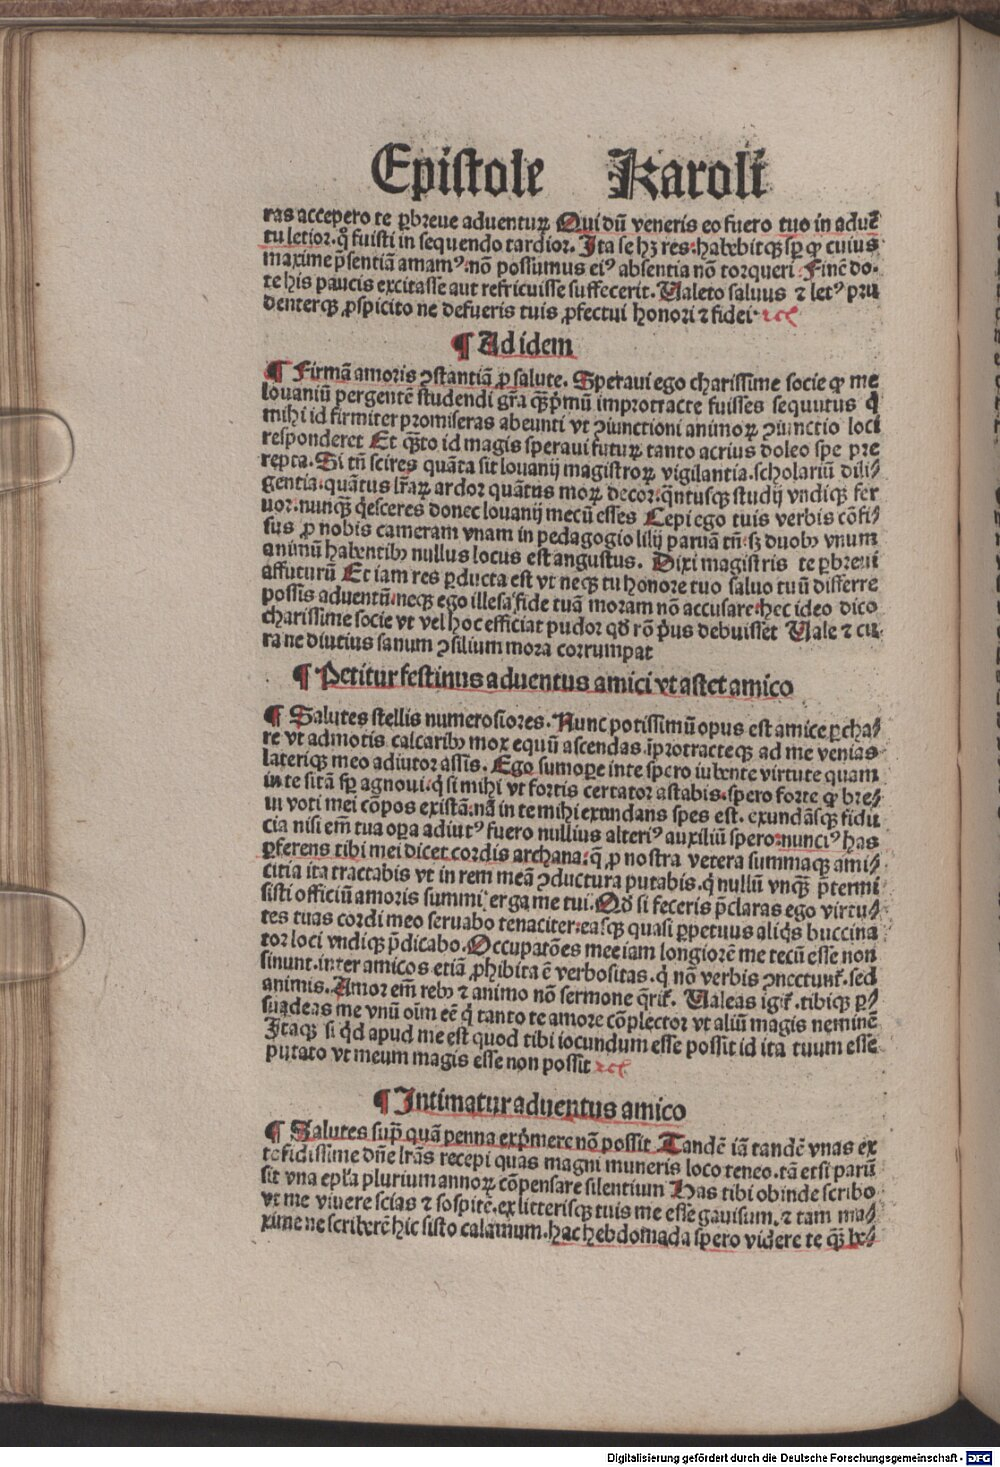 Epistole Karoli
ras accepero te ꝑbreue aduenturꝝ Qui dū veneris eo fuero tuo in aduē
tu letior. ꝙ fuisti in sequendo tardior. Ita se hꝫ res. habebitqꝫ sꝑ ꝙ cuius
maxime p̄sentiā amamꝰ. nō possumus eiꝰ absentia nō torqueri. Finē do-
te his paucis excitasse aut refricuisse suffecerit. Ualeto saluus ⁊ letꝰ pru
denterqꝫ ꝓspicito ne defueris tuis ꝓfectui honori ⁊ fidei
¶ Ad idem
¶ Firmā amoris ꝯstantiā ꝓ salute. Speraui ego charissime socie ꝙ me
louaniū pergentē studendi gr̄a qꝫp̄mū improtracte fuisses sequutus q̇
mihi id firmiter promiseras abeunti vt ꝯiunctioni animoꝝ ꝯiunctio loci
responderet Et qꝫto id magis speraui futurꝝ tanto acrius doleo spe pre
repta. Si tn̄ scires quāta sit louanij magistroꝝ vigilantia. scholariū dili⸗
gentia. quātus lr̄aꝝ ardor quātus moꝝ decor. q̄ntusqꝫ studij vndiqꝫ fer
uor. nunqꝫ q̇esceres donec louanij mecū esses Cepi ego tuis verbis cōfi⸗
sus ꝓ nobis cameram vnam in pedagogio lilij paruā tn̄. sꝫ duobꝰ vnum
animū habentibꝰ nullus locus est angustus. Dixi magistris te ꝑbreui
affuturū Et iam res ꝑducta est vt neqꝫ tu honore tuo saluo tuū differre
possis aduentū. neqꝫ ego illesa fide tuā moram nō accusare. hec ideo dico
charissime socie vt vel hoc efficiat pudor qđ rō p̄us debuisset Uale ⁊ cu⸗
ra ne diutius sanum ꝯsilium mora corrumpat
¶ Petitur festinus aduentus amici vt astet amico
¶ Salutes stellis numerosiores. Nunc potissimū opus est amice ꝑcha⸗
re vt admotis calcaribꝰ mox equū ascendas. īprotracteqꝫ ad me venias
lateriqꝫ meo adiutor assis. Ego summopere in te spero iubente virtute quam
in te sitā sꝑ agnoui. q̇ si mihi vt fortis certator astabis. spero forte ꝙ bre⸗
ui voti mei cōpos existā. nā in te mihi exundans spes est. exundāsqꝫ fidu
cia nisi em̄ tua oꝑa adiutꝰ fuero nullius alteriꝰ auxiliū spero. nunciꝰ has
ꝑferens tibi mei dicet cordis archana. q̄ ꝓ nostra vetera summaqꝫ ami⸗
citia ita tractabis vt in rem meā ꝯductura putabis. q̇ nullū vnqꝫ p̄termi
sisti officiū amoris summi erga me tui. Qđ si feceris p̄claras ego virtu⸗
tes tuas cordi meo seruabo tenaciter. easqꝫ quasi ꝑpetuus aliq̇s buccina
tor loci vndiqꝫ p̄dicabo. Occupatōes mee iam longiorē me tecū esse non
sinunt. inter amicos etiā ꝓhibita ē verbositas. q̇ nō verbis ꝯnectunt̄. sed
animis. Amor em̄ rebꝰ ⁊ animo nō sermone q̄rit̄. Ualeas igit̄. tibiqꝫ ꝑ⸗
suadeas me vnū oīm eē q̇ tanto te amore cōplector vt aliū magis neminē
Itaqꝫ si q̇d apud me est quod tibi iocundum esse possit id ita tuum esse
putato vt meum magis esse non possit
¶ Intimatur aduentus amico
¶ Salutes sup̄ quā penna exp̄mere nō possit Tandē iā tandē vnas ex
te fidissime dn̄e lr̄as recepi quas magni muneris loco teneo. tā etsi parū
sit vna epl̄a plurium annoꝝ cōpensare silentium Has tibi obinde scribo
vt me viuere scias ⁊ sospitē. ex litterisqꝫ tuis me esse gauisum. ⁊ tam ma⸗
xime ne scriberē hic sisto calamum. hac hebdomada spero videre te qꝫ be⸗
Digitalisierung gefördert durch die Deutsche Forschungsgemeinschaft - DFG